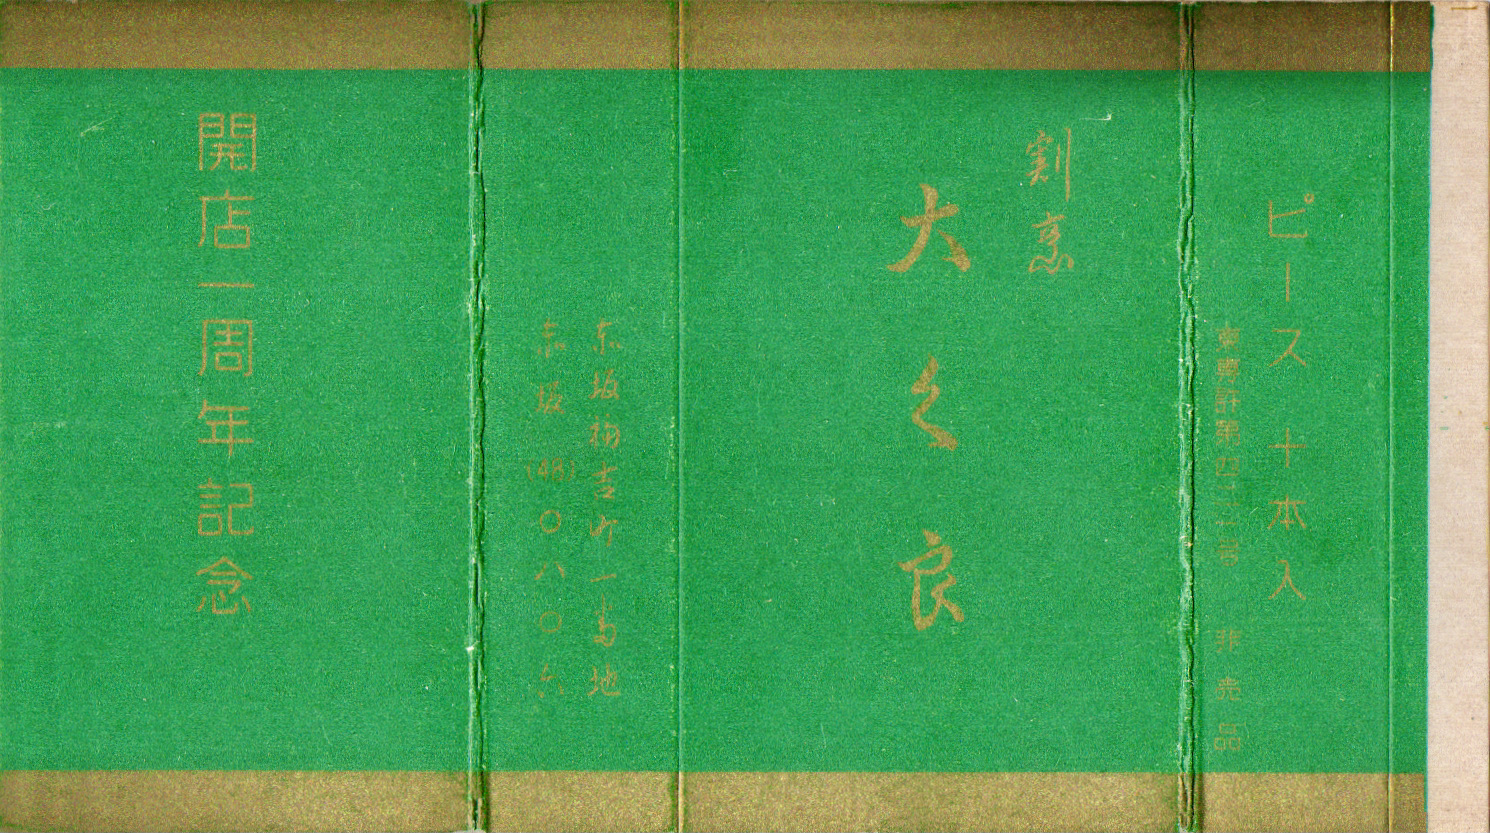 ピース十本入
東専許第四二二号 非売品
割烹
大久良
赤坂福吉町一番地
赤坂(48)〇八〇六
開店一周年記念